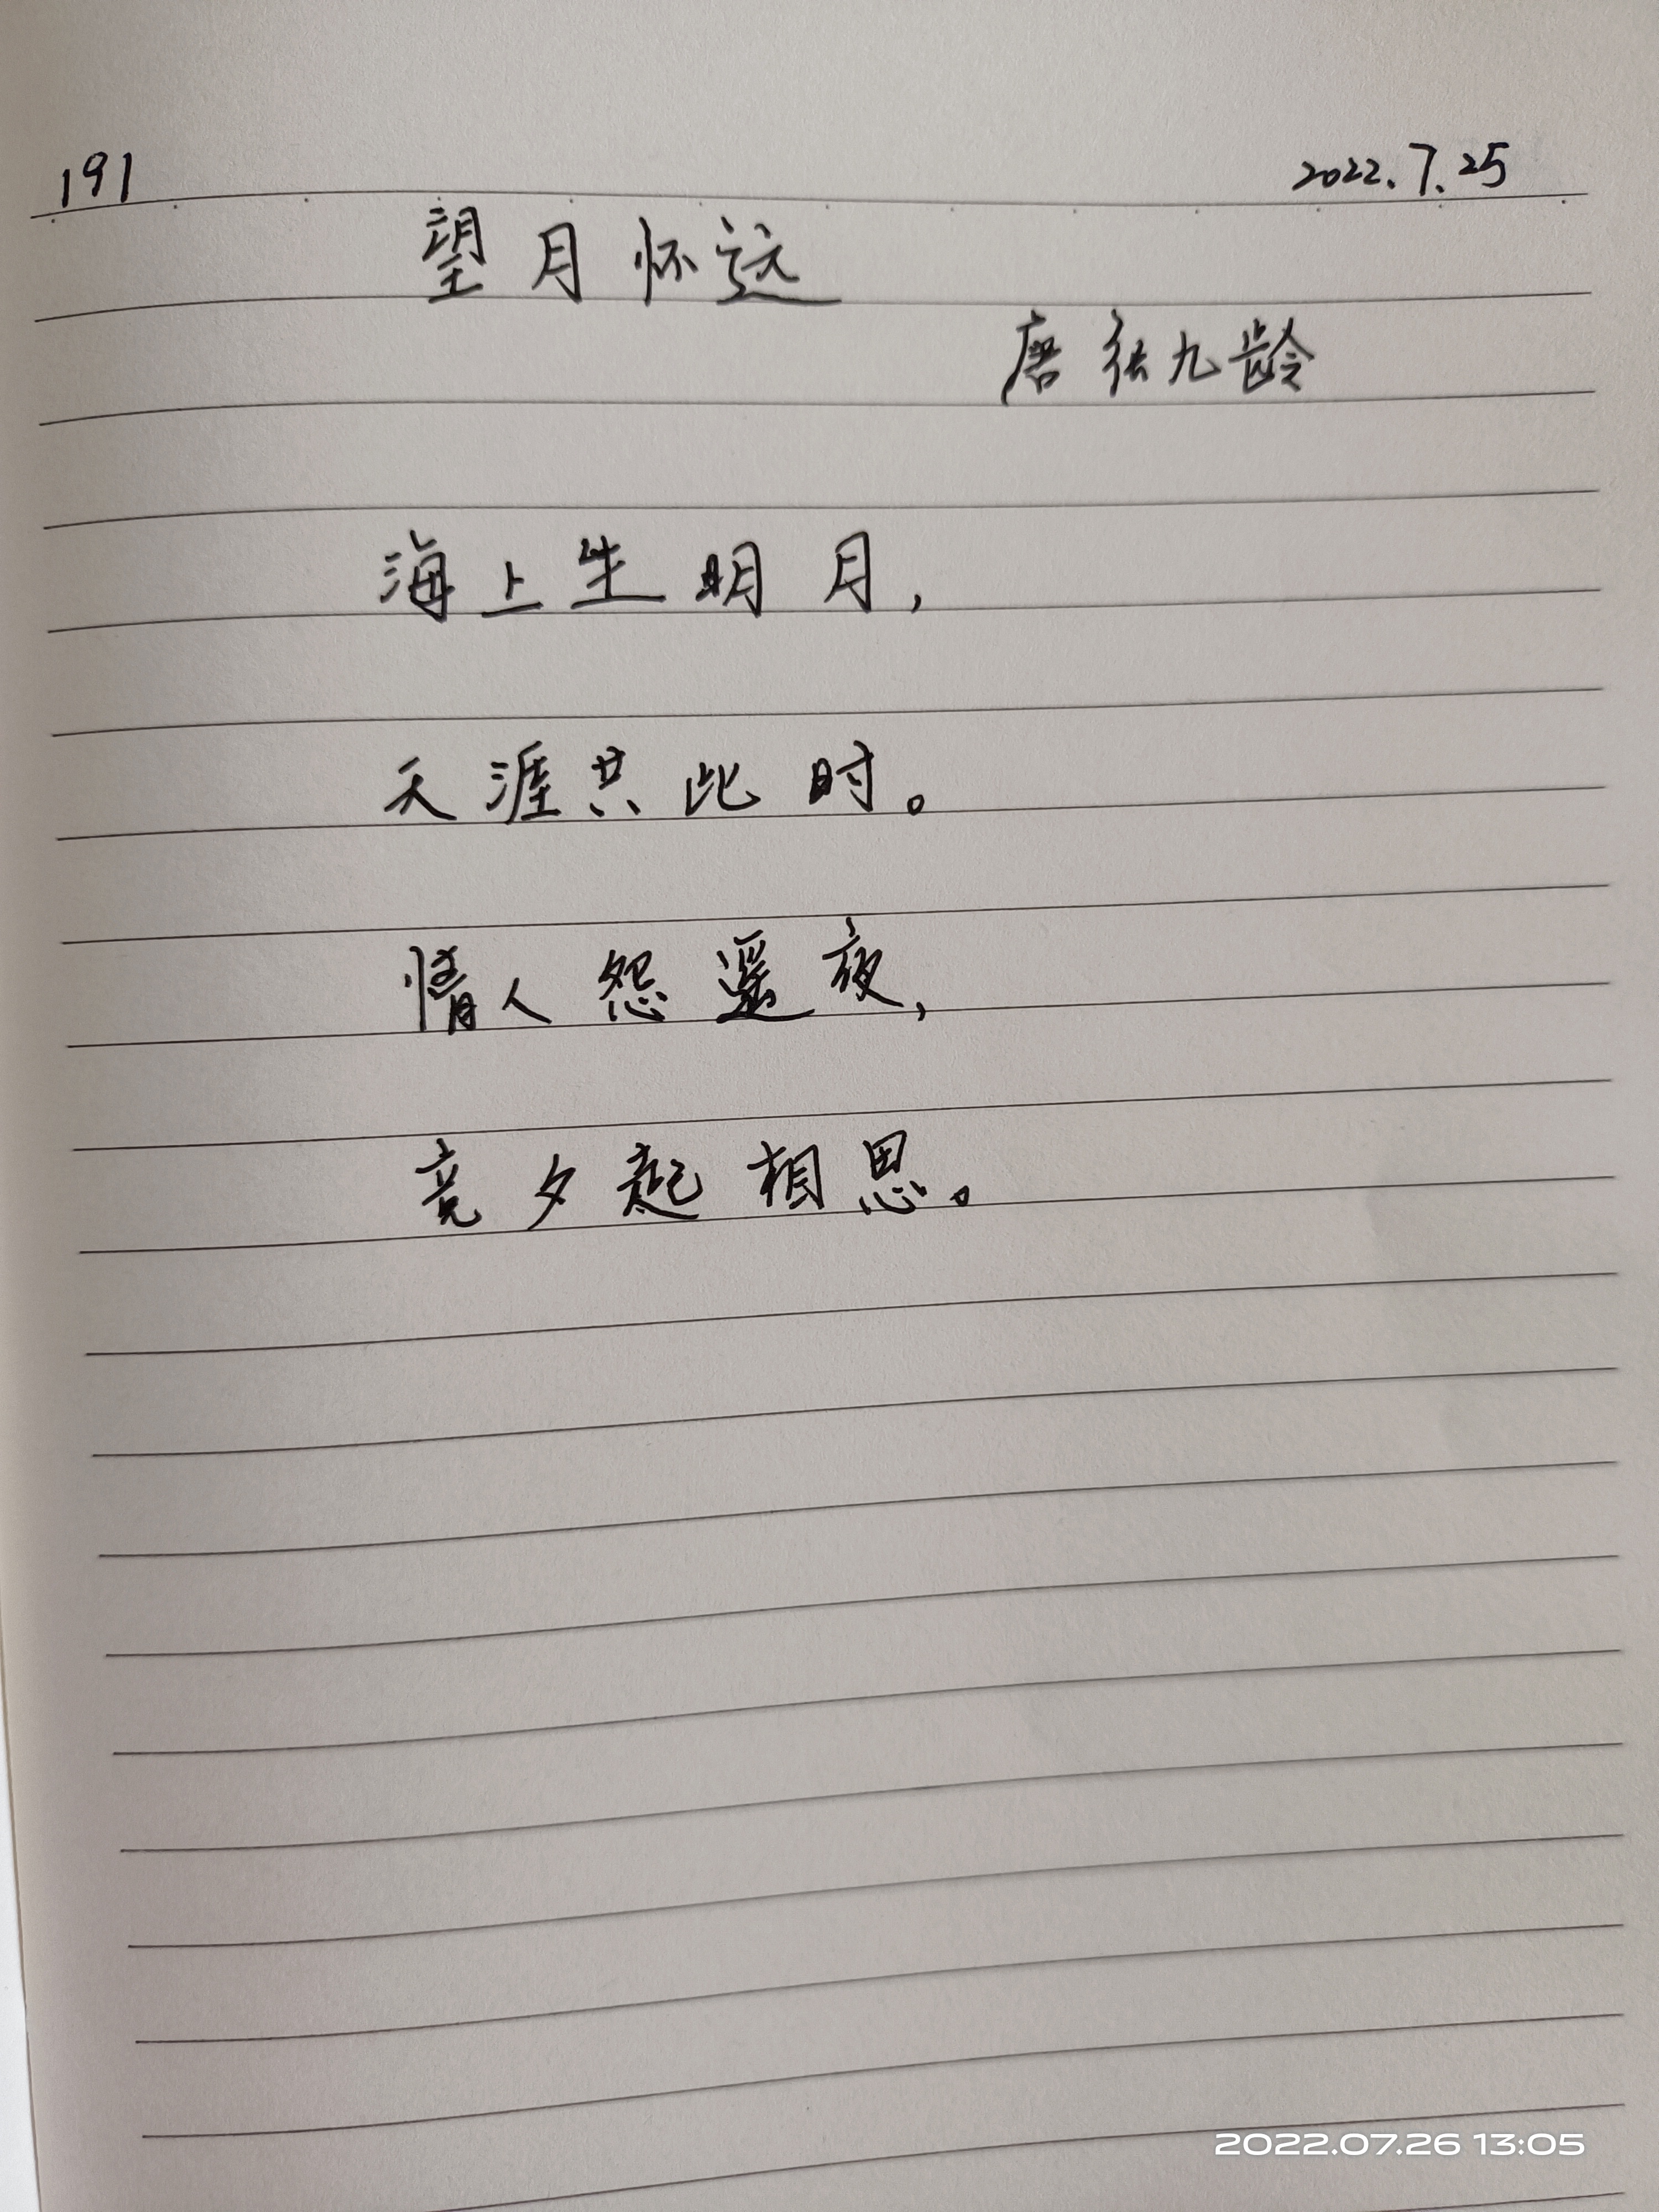 191 2022.7.25
望月怀远
唐 张九龄
海上生明月,
天涯共此时。
情人怨遥夜,
竞夕起相思。
2022.07.26 13:05